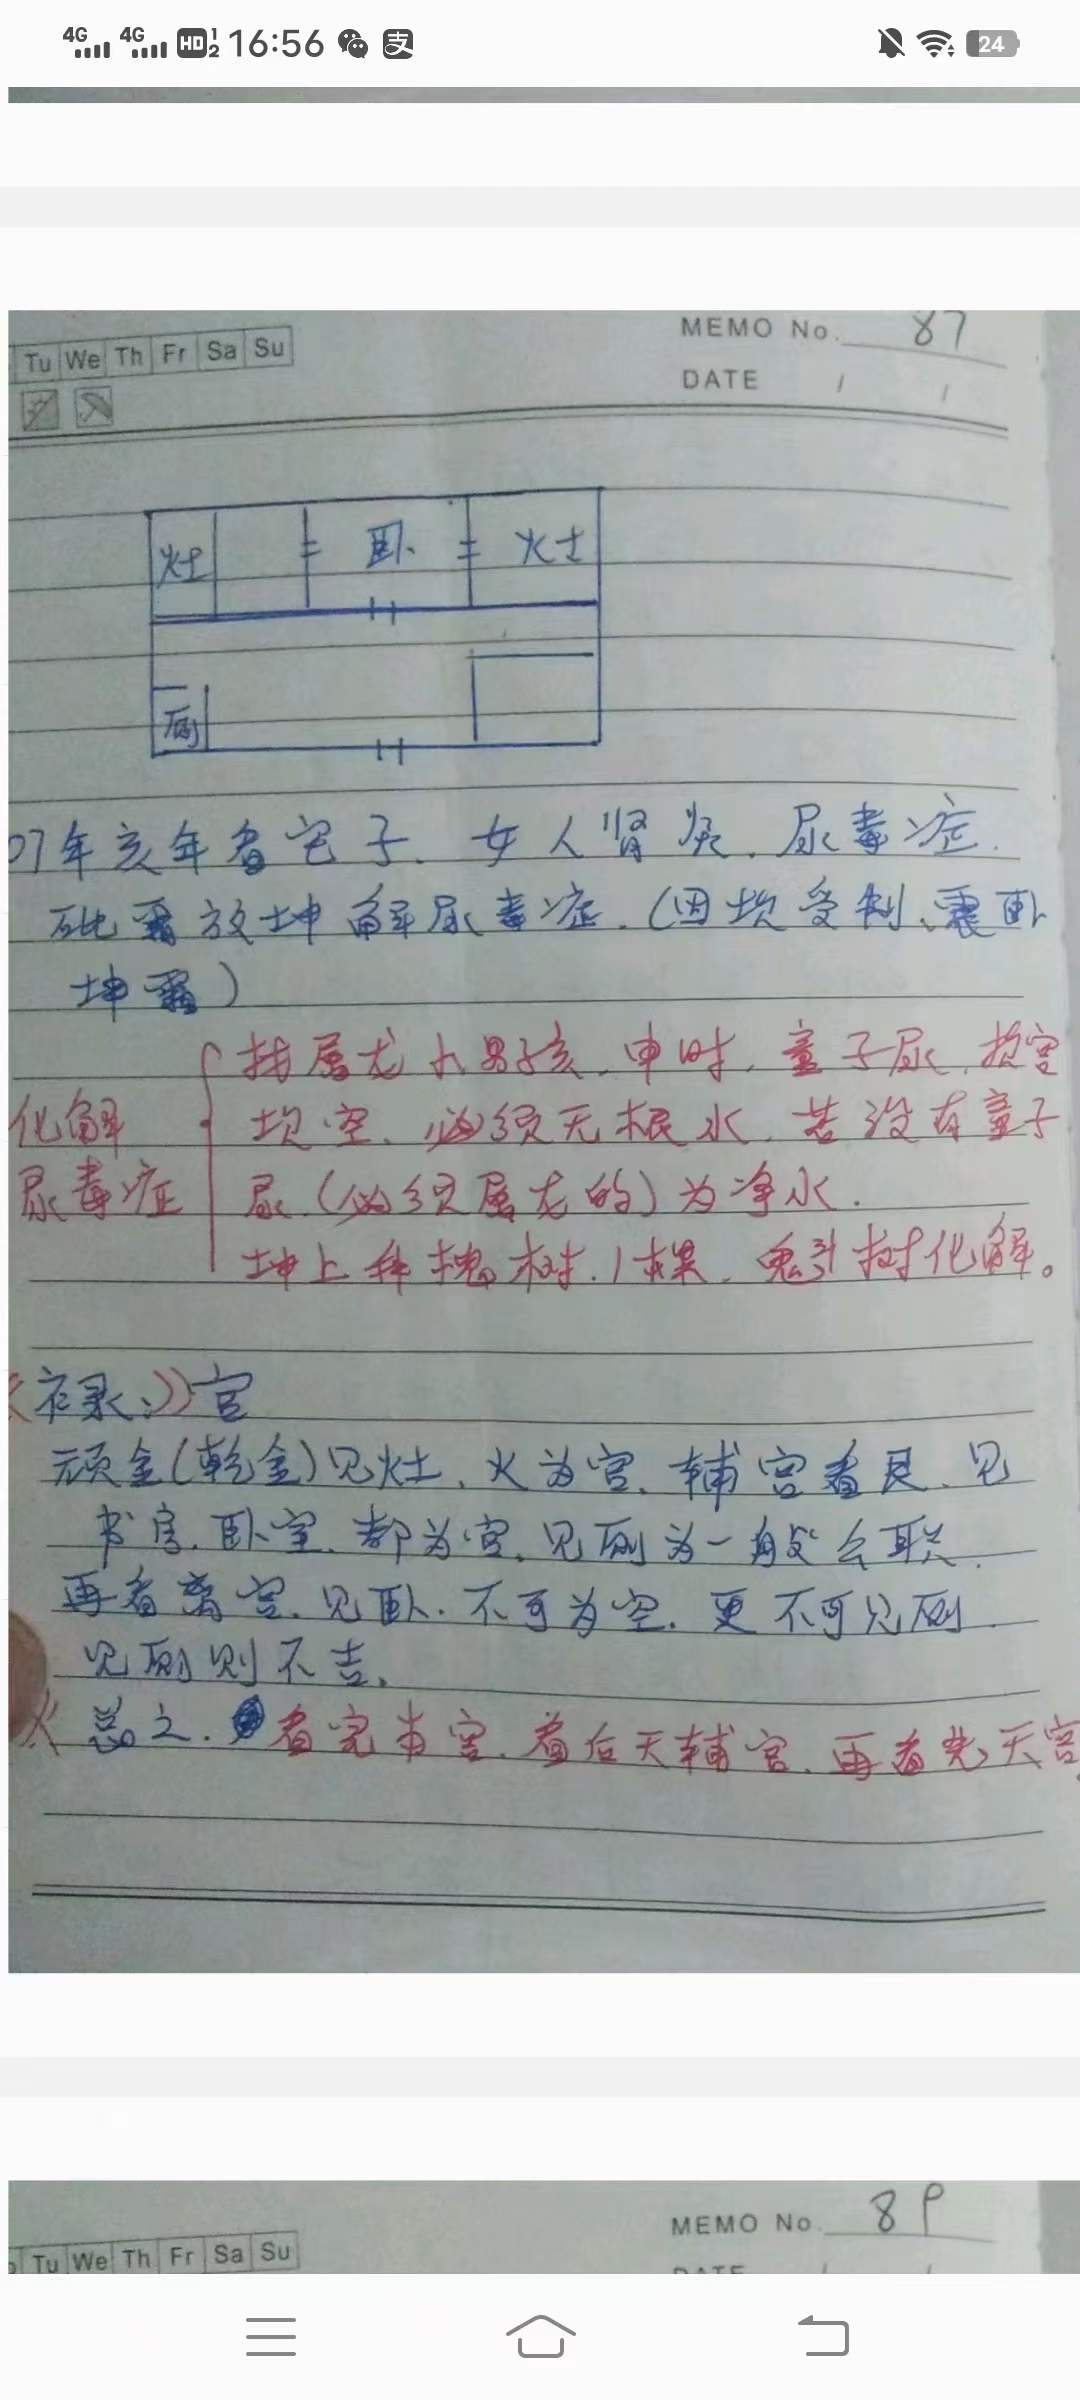 4G 4G HD 1 2 16:56 支 24
Tu We Th Fr Sa Su
MEMO No. 87
DATE / /
灶 卧 火士
厕
07年亥年看宅子、女人肾炎、尿毒症.
砒霜放坤解尿毒症.(因坎受制、震卧
坤霜)
化解
尿毒症
找属龙小男孩、申时、童子尿、
坎空、必须无根水、若没有童子
尿(必须属龙的)为净水.
坤上种槐树、1棵、鬼引树化解。
官
顽金(乾金)见灶、火为官、辅宫看艮、见
书房、卧室、都为官、见厕为一般公职.
再看离宫、见卧、不可为空、更不可见厕
见厕则不吉.
总之. 看完本宫、看后天辅宫、再看先天宫
MEMO No. 89
Tu We Th Fr Sa Su
DATE